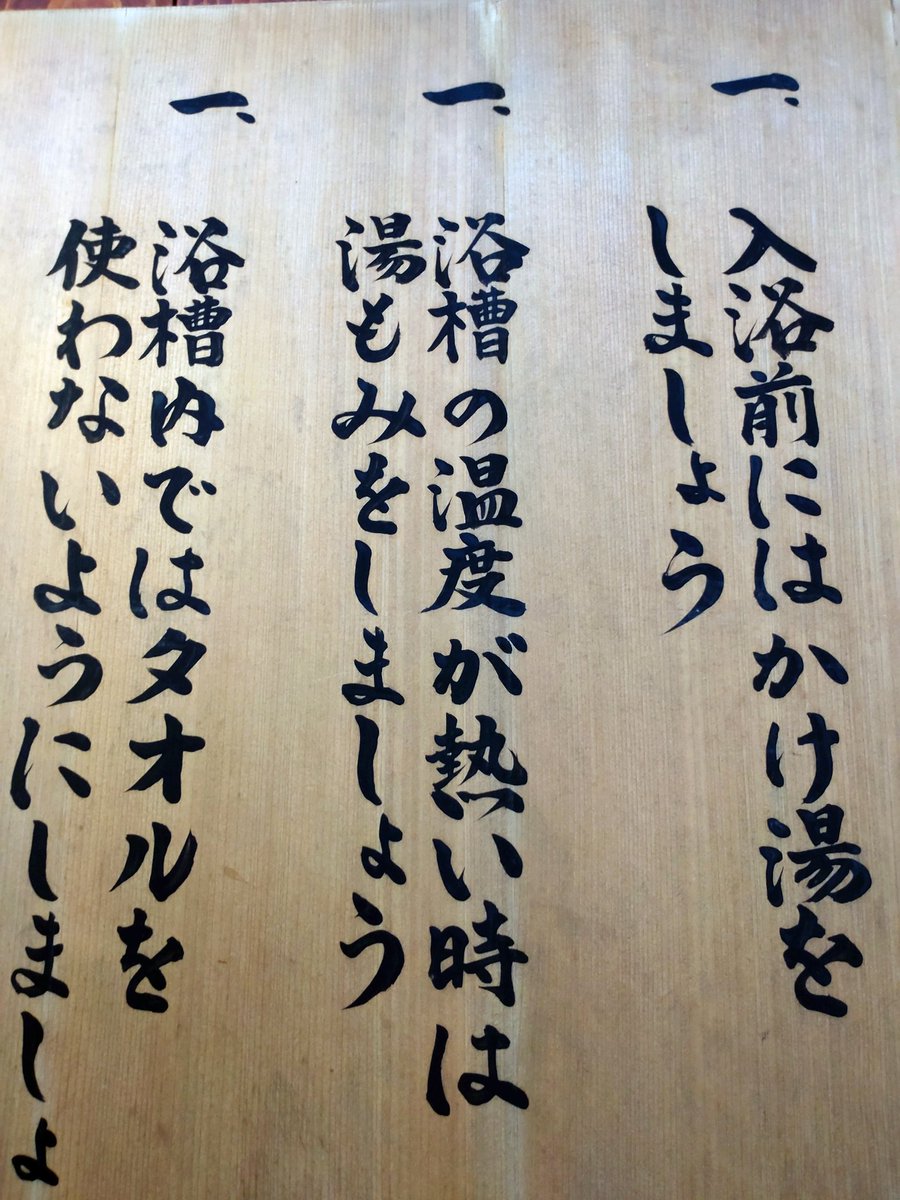 一、入浴前にはかけ湯を
しましょう
一、浴槽の温度が熱い時は
湯もみをしましょう
一、浴槽内ではタオルを
使わないようにしましょ